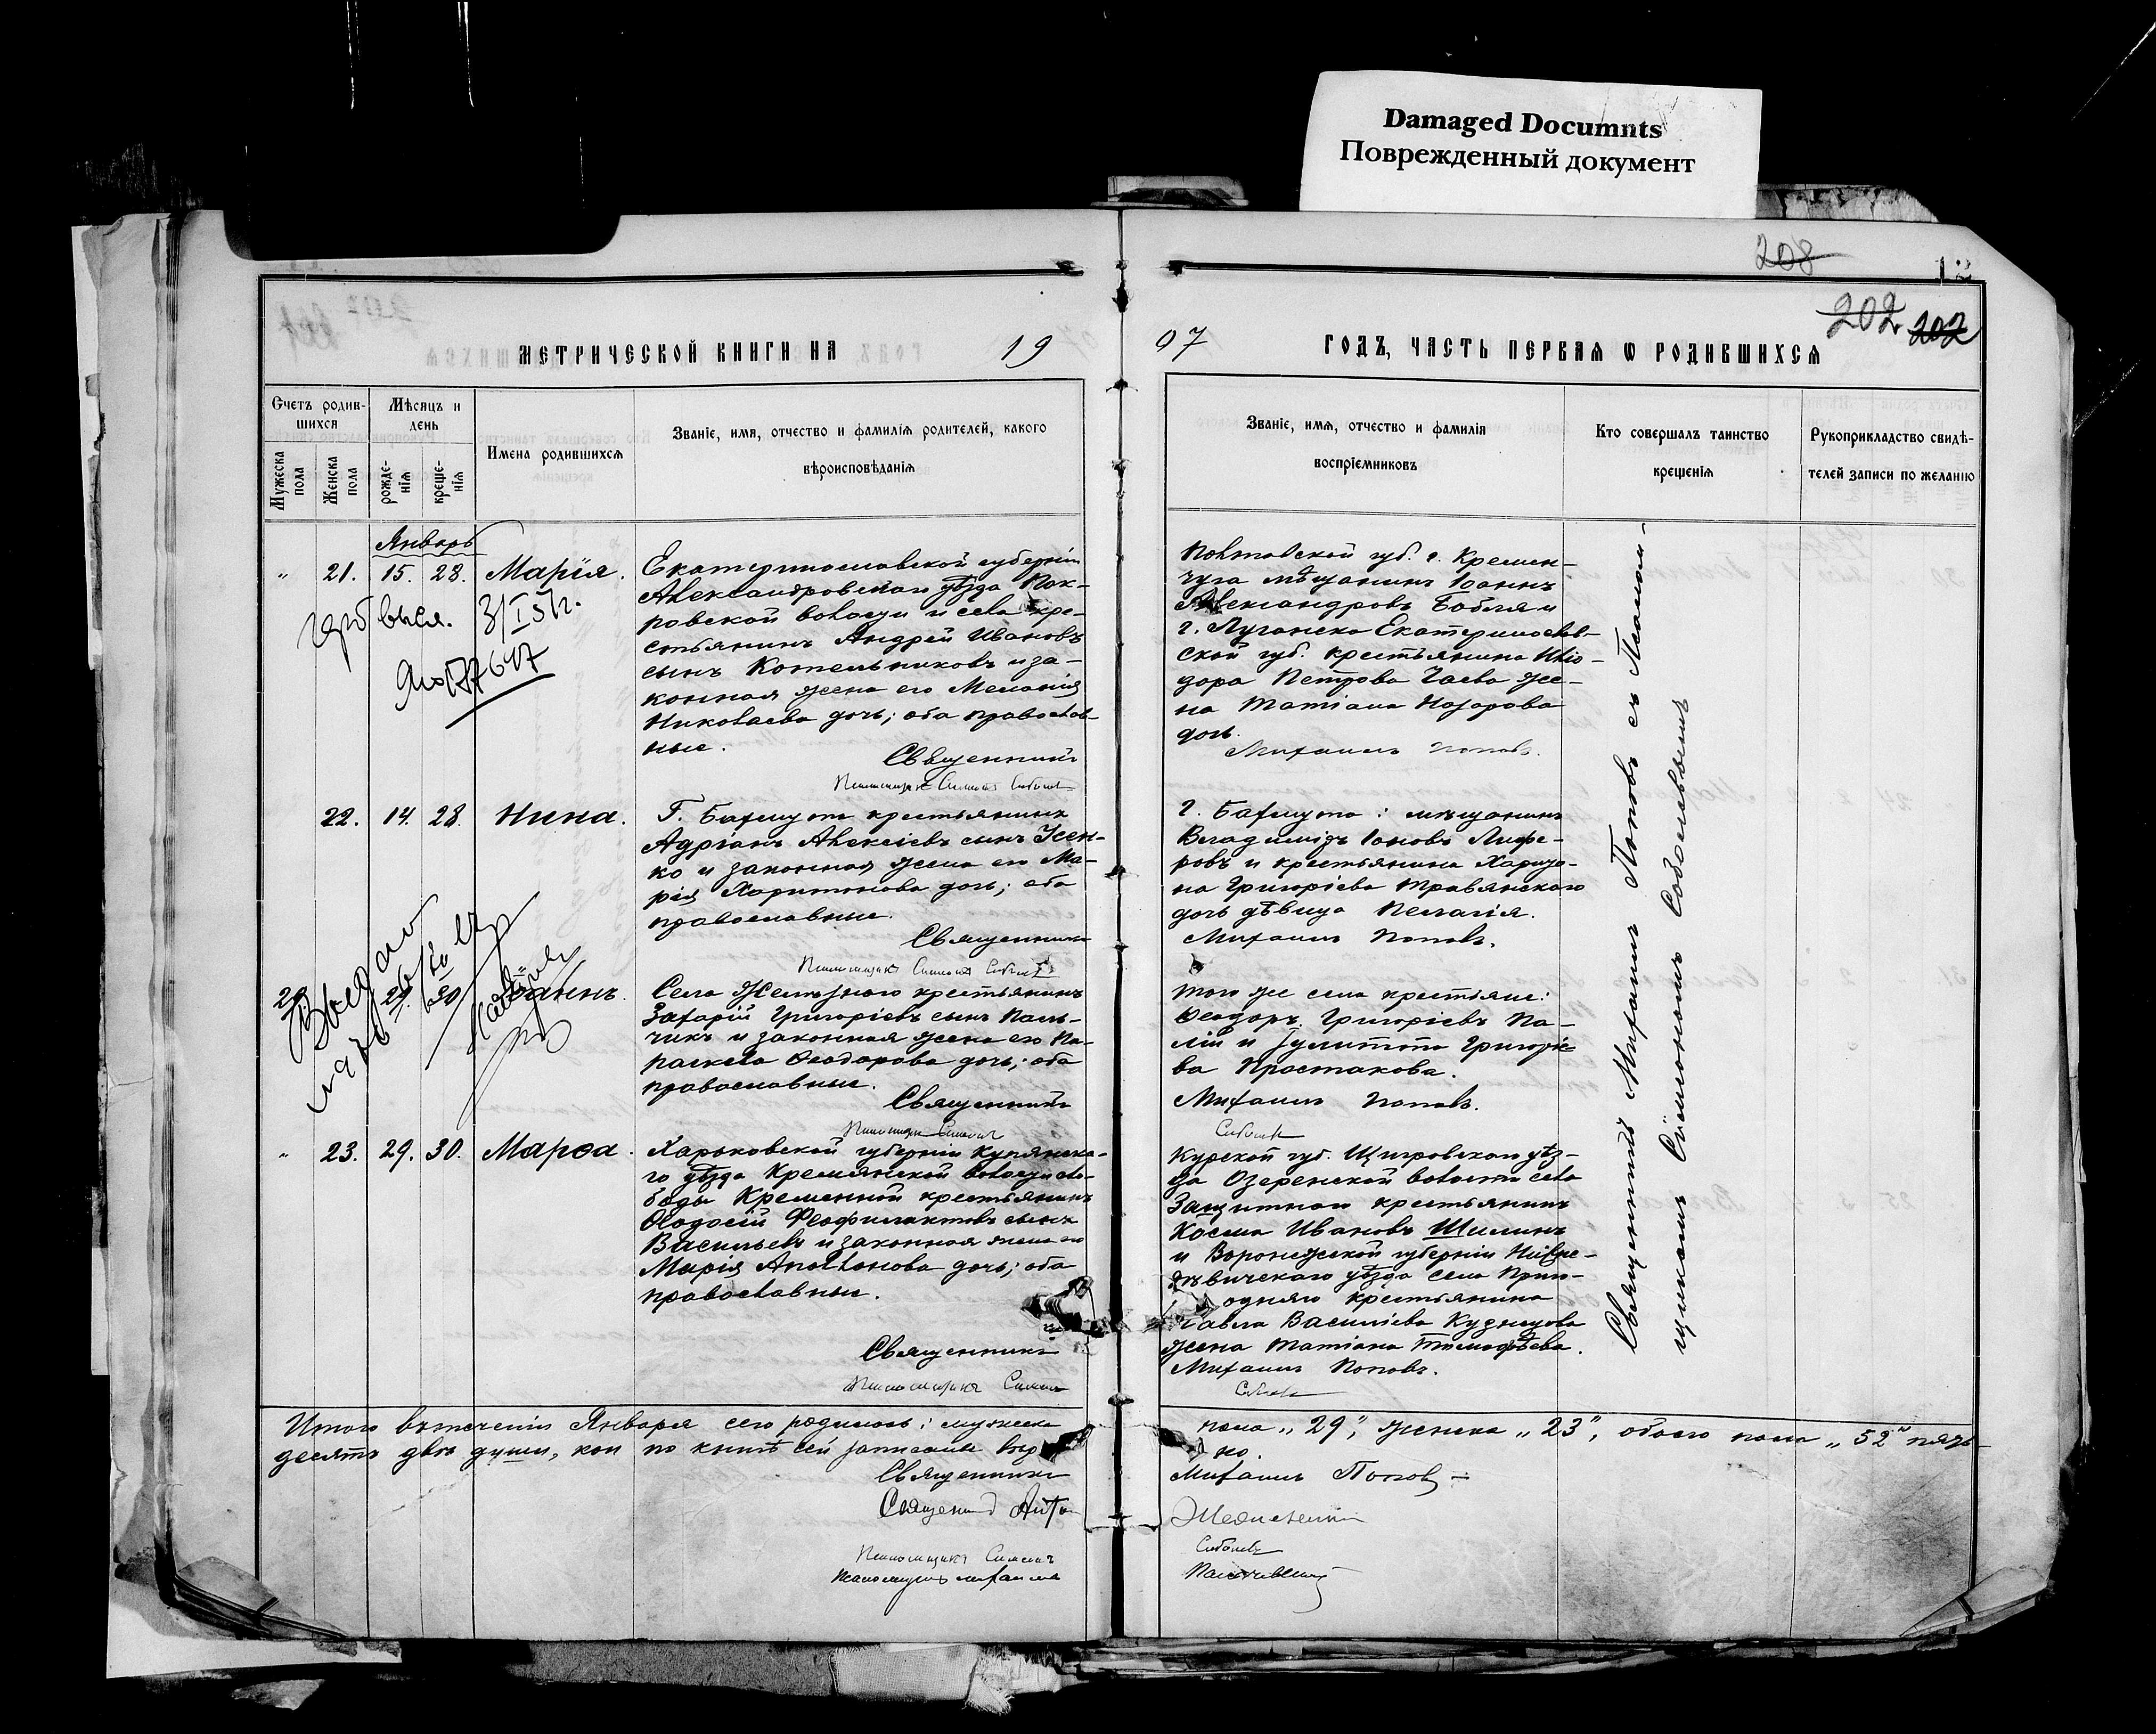 Damaged Documnts
Поврежденный документ
208
12
202 202
МЕТРИЧЕСКОЙ КНИГИ НА 19
07 ГОДЪ, ЧАСТЬ ПЕРВАЯ Ѡ РОДИВШИХСЯ
Счетъ родив-
шихся
Мужеска пола
Женска пола
Мѣсяцъ и
день
рожде-
нія
креще-
нія
Имена родившихся
Званіе, имя, отчество и фамилія родителей, какого
вѣроисповѣданія
Званіе, имя, отчество и фамилія
воспріемниковъ
Кто совершалъ таинство
крещенія
Рукоприкладство свидѣ-
телей записи по желанію
Январь
" 21. 15. 28. Марія.
Екатеринославской губерніи
Александровскаго уѣзда Пок-
ровской волости и села кре-
стьянинъ Андрей Ивановъ
сынъ Котельниковъ и за-
конная жена его Меланія
Николаева дочь; оба православ-
ные.
Священникъ
Псаломщикъ Симеонъ
Полтавской губ. г. Кремен-
чуга мѣщанинъ Іоаннъ
Александровъ Бабля и
г. Луганска Екатеринослав-
ской губ. крестьянина Иліо-
дора Петрова Гаева же-
на Татіана Назарова
дочь.
Михаилъ Поповъ.
22. 14. 28. Нина.
Г. Бахмута крестьянинъ
Адріанъ Алексіевъ сынъ Усен-
ко и законная жена его Ма-
рія Харитонова дочь; оба
православные.
Священникъ
Псаломщикъ Симеонъ
г. Бахмута: мѣщанинъ
Владиміръ Іоновъ Лифе-
ровъ и крестьянина Харито-
на Григоріева Травянскаго
дочь дѣвица Пелагія.
Михаилъ Поповъ.
29. 29. 30
Села Желѣзнаго крестьянинъ
Захарій Григоріевъ сынъ Паль-
чикъ и законная жена его Па-
раскева Ѳеодорова дочь; оба
православные.
Священникъ
Псаломщикъ Симеонъ
того же села крестьяне:
Ѳеодоръ Григоріевъ Па-
лій и Іулитта Григоріе-
ва Простакова.
Михаилъ Поповъ.
" 23. 29. 30. Марѳа.
Харьковской губерніи Купянска-
го уѣзда Кремянской волости сло-
боды Кременной крестьянинъ
Ѳеодосій Феофилактовъ сынъ
Васильевъ и законная жена его
Марія Аполлонова дочь; оба
православные.
Священникъ
Псаломщикъ Симеонъ
Курской губ. Щигровскаго уѣз-
да Озеренской волости села
Защитнаго крестьянинъ
Косма Ивановъ Шилинъ
и Воронежской губерніи Нижне-
дѣвичскаго уѣзда села
крестьянина
Павла Васильева Кузнецова
жена Татіана Тимоѳѣева.
Михаилъ Поповъ.
Священникъ Михаилъ Поповъ съ Псалом-
щикомъ Симеономъ Соболевымъ
Итого въ теченіи Января сего родилось: мужеска
пола „29", женска „23", обоего пола „52" пять-
десятъ двѣ души, кои по книгѣ сей записаны вѣр
но.
Священникъ
Михаилъ Поповъ
Священникъ
Псаломщикъ Симеонъ
Соболевъ
Псаломщикъ Михаилъ